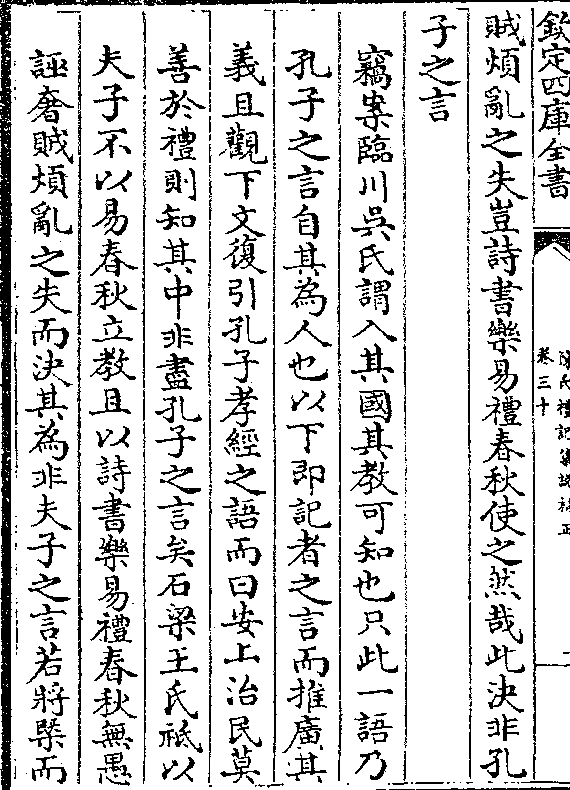 欽定四庫全書
陳氏禮記集說補正
卷三十
二
賊煩亂之失豈詩書樂易禮春秋使之然哉此決非孔
子之言
竊案臨川吳氏謂入其國其教可知也只此一語乃
孔子之言自其為人也以下即記者之言而推廣其
義且觀下文復引孔子孝經之語而曰安上治民莫
善於禮則知其中非盡孔子之言矣石梁王氏祗以
夫子不以易春秋立教且以詩書樂易禮春秋無愚
誣奢賊煩亂之失而決其為非夫子之言若將槩而